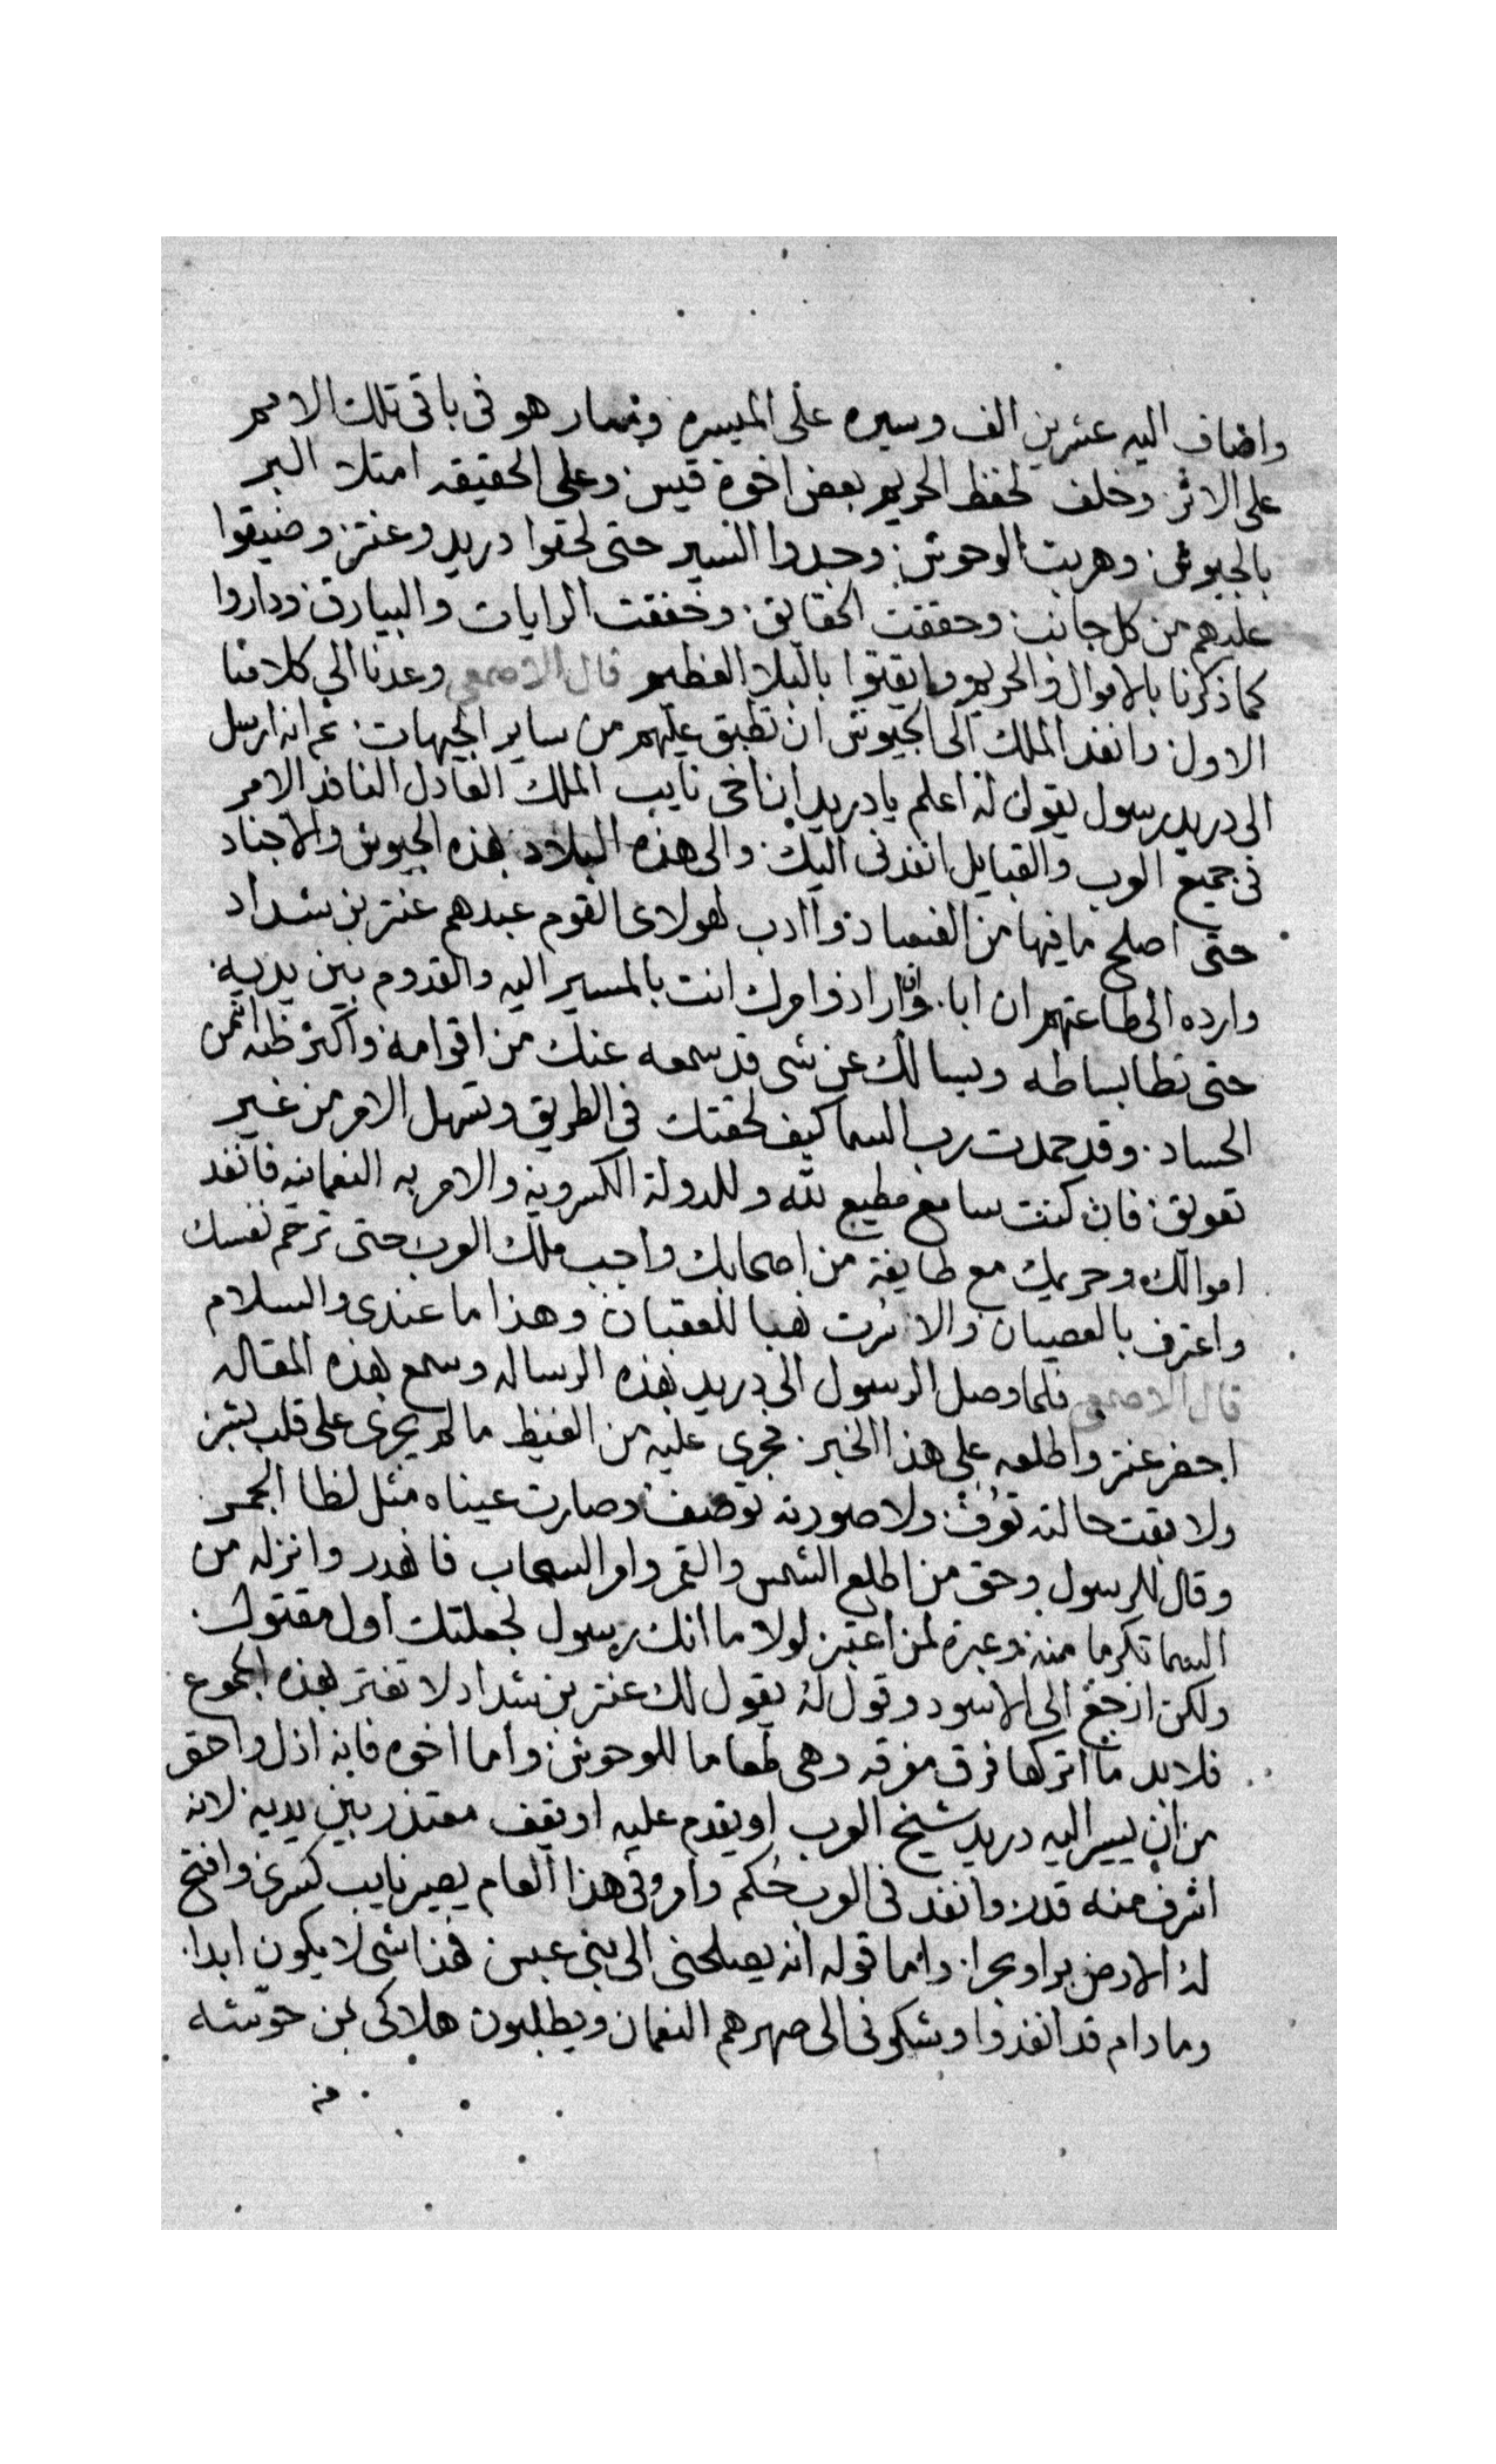 واضاف اليه عشرين الف وسيره على الميسره وسار هو في باقي تلك الامم
على الاثر وخلف لحفظ الحريم بعض اخوة قيس وعلى الحقيقه امتلا البر
بالجيوش وهربت الوحوش وجدوا السير حتى لحقوا دريد وعنتر وضيقوا
عليهم من كل جانب وحققت الحقايق وخفقت الرايات والبيارق وداروا
كما ذكرنا بالاموال والحريم وايقنوا بالبلا العظيم قال الاصمعي وعدنا الى كلامنا
الاول وانفد الملك الى الجيوش ان تطبق عليهم من ساير الجهات ثم انه ارسل
الى دريد رسول يقول له اعلم يا دريد ان اخي نايب الملك العادل النافد الامر
في جميع العرب والقبايل انفدني اليك والى هذه البلاد بهذه الجيوش والاجناد
حتى اصلح ما فيها من الفساد واادب لهولاى القوم عبدهم عنتر بن شداد
وارده الى طاعتهم ان ابا وان اراد وامرك انت بالمسير اليه والقدوم بين يديه
حتى تطا بساطه ويسالك عن شي قد سمعه عنك من اقوامه واكثر ظنه انهم من
الحساد وقد حمدت رب السما كيف لحقتك في الطريق وتسهل الامر من غير
تعويق فان كنت سامع مطيع لله وللدولة الكسرويه والامريه النعمانيه فانفد
اموالك وحريمك مع طايفة من اصحابك واجب ملك العرب حتى ترحم نفسك
واعترف بالعصيان والا صرت نهبا للعقبان وهذا ما عندي والسلام
قال الاصمعي فلما وصل الرسول الى دريد بهذه الرساله وسمع هذه المقاله
احضر عنتر واطلعه على هذا الخبر فجرى عليه من الغيظ ما لم يجرى على قلب بشر
ولا بقت حالته توف ولا صورته توصف وصارت عيناه مثل لظا الجمر
وقال للرسول وحق من اطلع الشمس والقمر وامر السحاب فانهدر وانزله من
السما تكرما منه وعبرة لمن اعتبر لولا ما انك رسول لجعلتك اول مقتول
ولكن ارجع الى الاسود وقول له يقول لك عنتر بن شداد لا تغتر بهذه الجموع
فلا بد ما اتركها فرق مفرقه وهي طعاما للوحوش واما اخوه فانه اذل واحقر
من ان يسير اليه دريد شيخ العرب او يقدم عليه او يقف معتذر بين يديه لانه
اشرف منه قدر وانفد في العرب حكم وامر وفي هذا العام يصير نايب كسرى وافتح
له الارض برا وبحرا واما قوله انه يصلحني الى بني عبس فهذا شي لا يكون ابدا
وما دام قد انفدوا وشكوني الى صهرهم النعمان ويطلبون هلاكي لمن حوشه